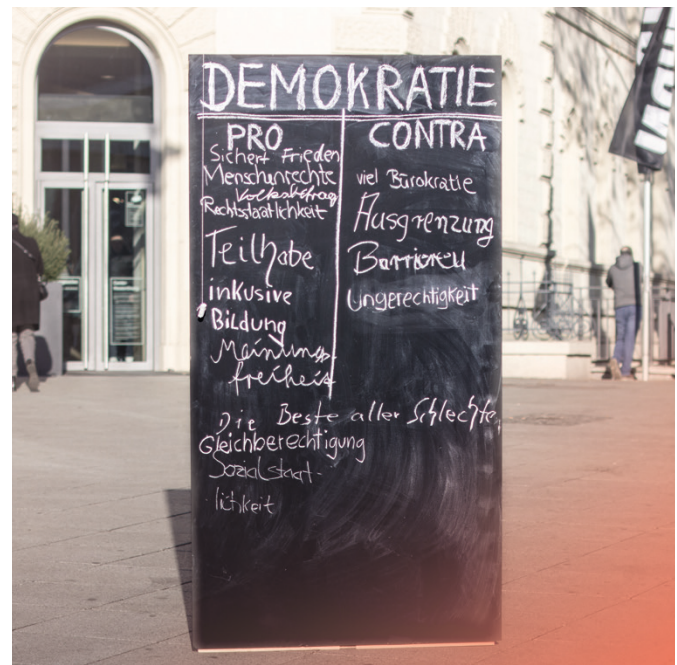 DEMOKRATIE
PRO
Sichert Frieden
Menschenrechte
Volksbefrag
Rechtsstaatlichkeit
Teilhabe
inkusive
Bildung
Meinungs-
freiheit
CONTRA
viel Bürokratie
Ausgrenzung
Barrieren
Ungerechtigkeit
Die Beste aller Schlechten
Gleichberechtigung
Sozialstaat-
lichkeit